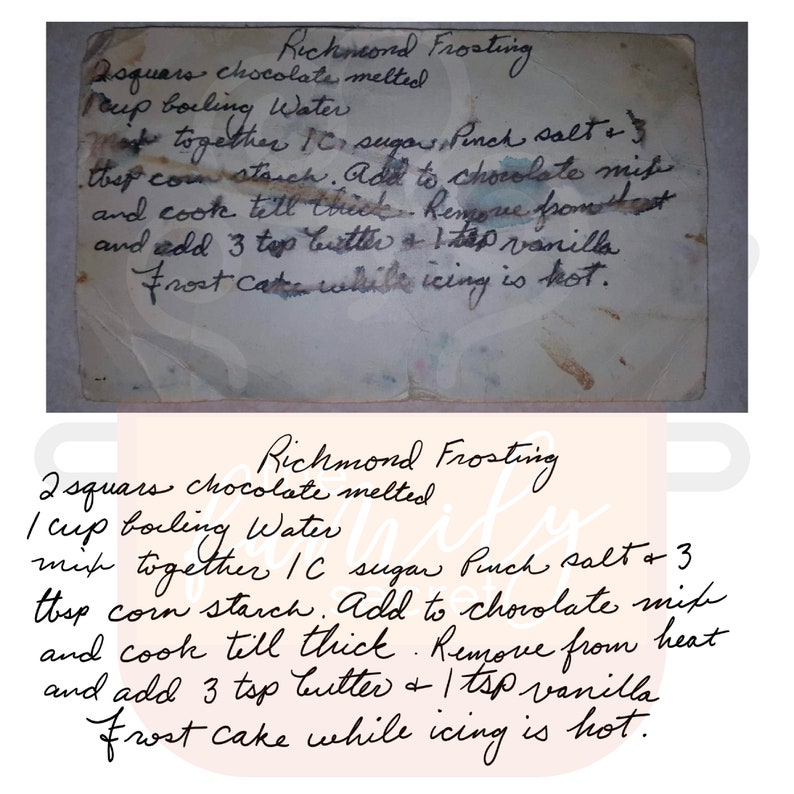 Richmond Frosting
2 squars chocolate melted
1 cup boiling Water
mix together 1C sugar, Pinch salt & 3
tbsp corn starch. Add to chocolate mix
and cook till thick. Remove from heat
and add 3 tsp butter & 1 tsp vanilla
Frost cake while icing is hot.
Richmond Frosting
2 squars chocolate melted
1 cup boiling Water
mix together 1C sugar Pinch salt & 3
tbsp corn starch. Add to chocolate mix
and cook till thick. Remove from heat
and add 3 tsp butter & 1 tsp vanilla
Frost cake while icing is hot.
the
family
secret